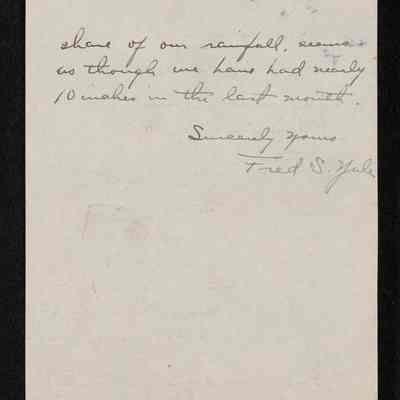 share of our rainfall, seems
as though we have had nearly
10 inches in the last month.
Sincerely Yours
Fred S. Yale